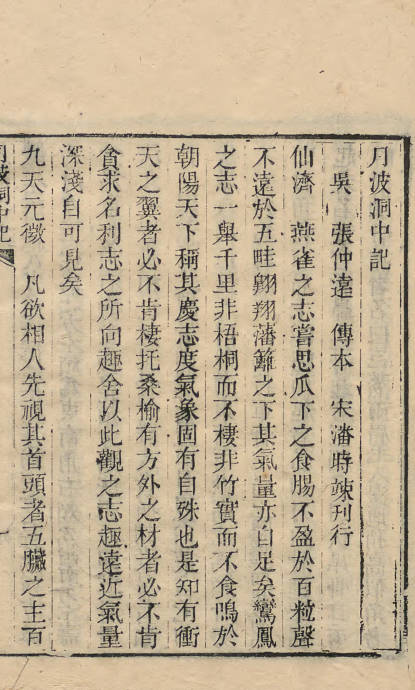 月波洞中記
吳 張仲遠 傳本 宋潘時竦刊行
仙濟 燕雀之志嘗思瓜下之食腸不盈於百粒聲
不遠於五畦翺翔藩籬之下其氣量亦自足矣鸞鳳
之志一舉千里非梧桐而不棲非竹實而不食鳴於
朝陽天下稱其慶志度氣象固有自殊也是知有衝
天之翼者必不肯棲托桑榆有方外之材者必不肯
貪求名利志之所向趣舍以此觀之志趣遠近氣量
深淺自可見矣
九天元微 凡欲相人先視其首頭者五臟之主百
月波洞中記